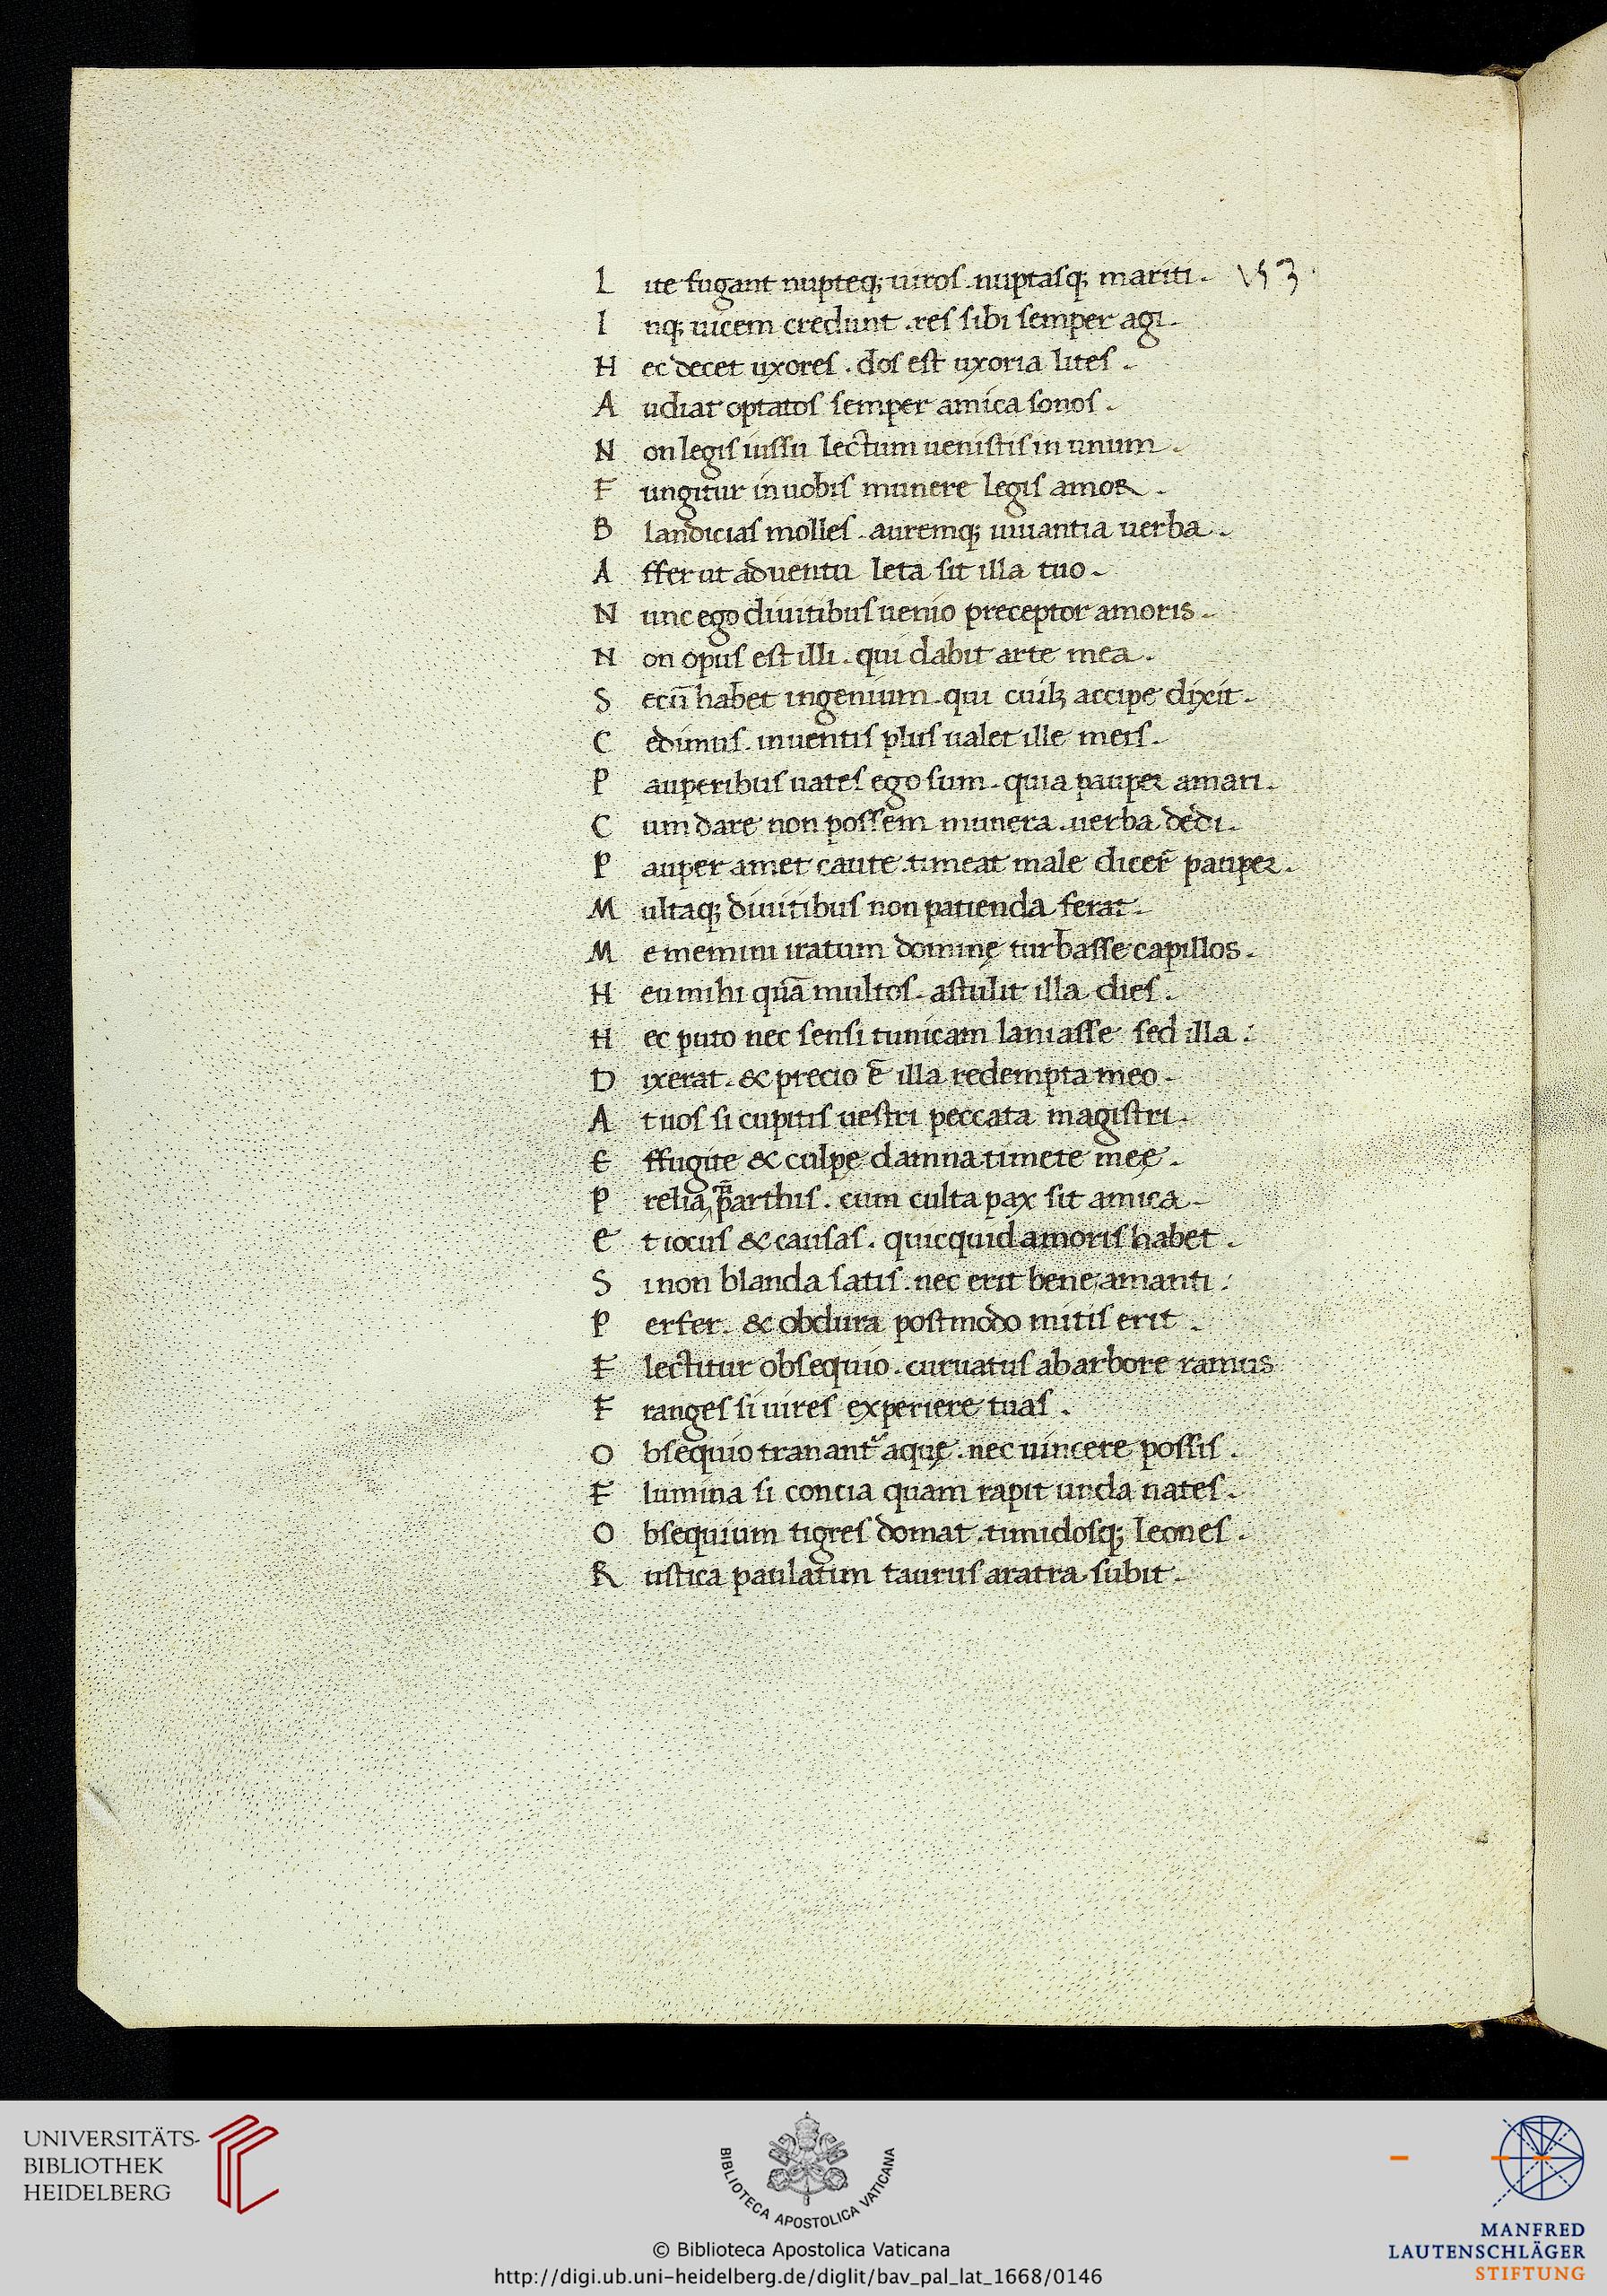 L ite fugant nupteq; uiros . nuptasq; mariti .
I nq; uicem credunt . res sibi semper agi .
H ec decet uxores . dos est uxoria lites .
A udiat optatos semper amica sonos .
N on legis iussu lectum uenistis in unum .
F ungitur in uobis munere legis amor .
B landicias molles . auremq; iuuantia uerba .
A ffer ut aduentu leta sit illa tuo .
N unc ego diuitibus uenio preceptor amoris .
N on opus est illi . qui dabit arte mea .
S ecū habet ingenium . qui cuilꝫ accipe dixit .
C edimus . inuentis plus ualet ille meis .
P auperibus uates ego sum . quia pauper amari .
C um dare non possem munera . uerba dedi .
P auper amet caute . timeat male dicer̄ pauper .
M ultaq; diuitibus non patienda ferat .
M e memini iratum dominę turbasse capillos .
H eu mihi quā multos . astulit illa dies .
H ec puto nec sensi tunicam laniasse sed illa :
D ixerat . & precio ē illa redempta meo .
A t uos si cupitis uestri peccata magistri .
E ffugite & culpe damna timete meę .
P relia, parthis . cum culta pax sit amica .
E t iocus & causas . quicquid amoris habet .
S i non blanda satis . nec erit bene, amanti :
P erfer . & obdura postmodo mitis erit .
F lectitur obsequio . curuatus ab arbore ramus
F ranges si uires experiere tuas .
O bsequio tranant᷑ aquę . nec uincere possis .
F lumina si contia quam rapit unda nates .
O bsequium tigres domat . timidosq; leones .
R ustica paulatim taurus aratra subit .
UNIVERSITÄTS-
BIBLIOTHEK
HEIDELBERG
BIBLIOTECA APOSTOLICA VATICANA
© Biblioteca Apostolica Vaticana
http://digi.ub.uni-heidelberg.de/diglit/bav_pal_lat_1668/0146
MANFRED
LAUTENSCHLÄGER
STIFTUNG